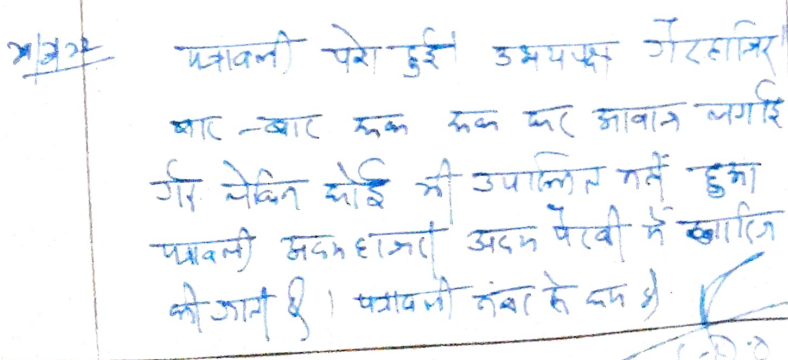 पत्रावली पेश हुई। उभयपक्ष गैरहाजिर।
बार-बार रूक रूक कर आवाज लगाई
गई लेकिन कोई भी उपस्थित नहीं हुआ
पत्रावली अदम हाजरी अदम पैरवी में खारिज
की जाती है। पत्रावली नंबर से कम हो।